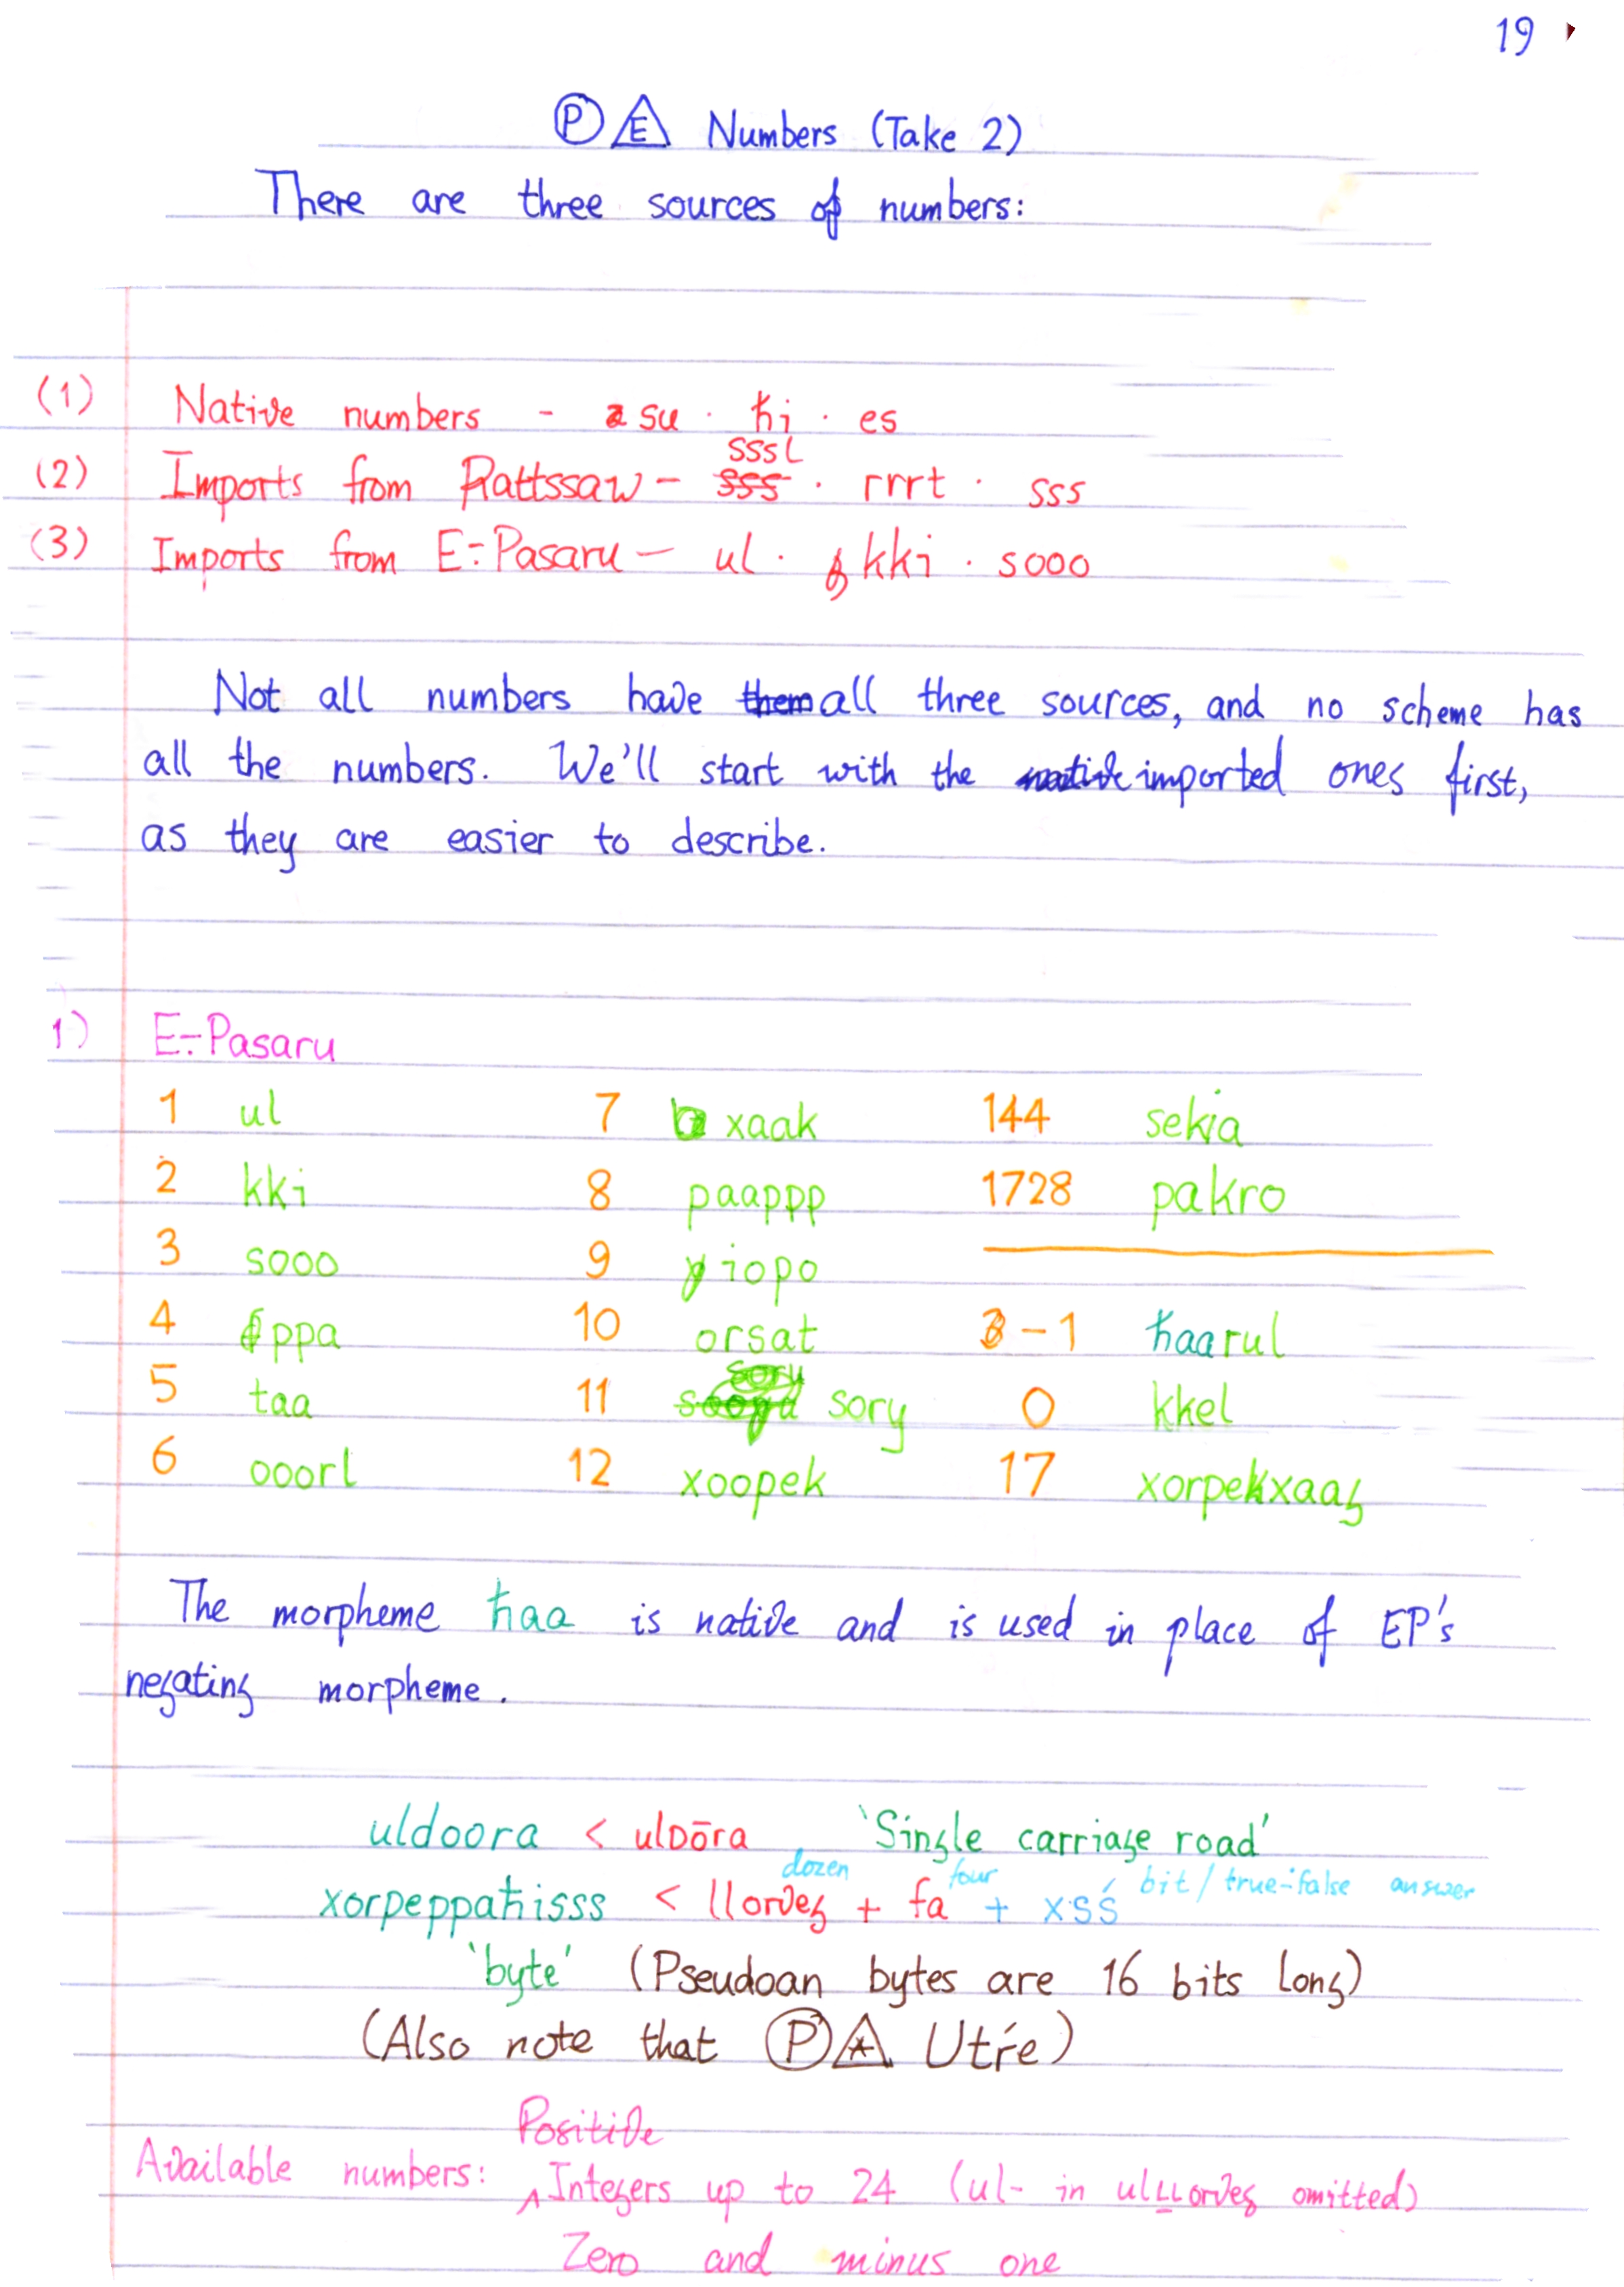 19
Ⓟ E Numbers (Take 2)
There are three sources of numbers:
(1) Native numbers - su · ħi · es
(2) Imports from Rattssaw - sssl · rrrt · sss
(3) Imports from E-Pasaru - ul · kki · sooo
Not all numbers have all three sources, and no scheme has
all the numbers. We'll start with the imported ones first,
as they are easier to describe.
1) E-Pasaru
1 ul 7 xaak 144 sekia
2 kki 8 paappp 1728 pakro
3 sooo 9 iopo
4 ppa 10 orsat -1 ħaarul
5 taa 11 sory 0 kkel
6 ooorl 12 xoopek 17 xorpekxaag
The morpheme ħaa is native and is used in place of EP's
negating morpheme.
uldoora < ulDōra 'Single carriage road'
dozen four bit/true-false answer
xorpeppaħisss < llorveg + fa + xsś
'byte' (Pseudoan bytes are 16 bits long)
(Also note that Ⓟ Utŕe)
Positive
Available numbers: ^Integers up to 24 (ul- in ulLLorveg omitted)
Zero and minus one